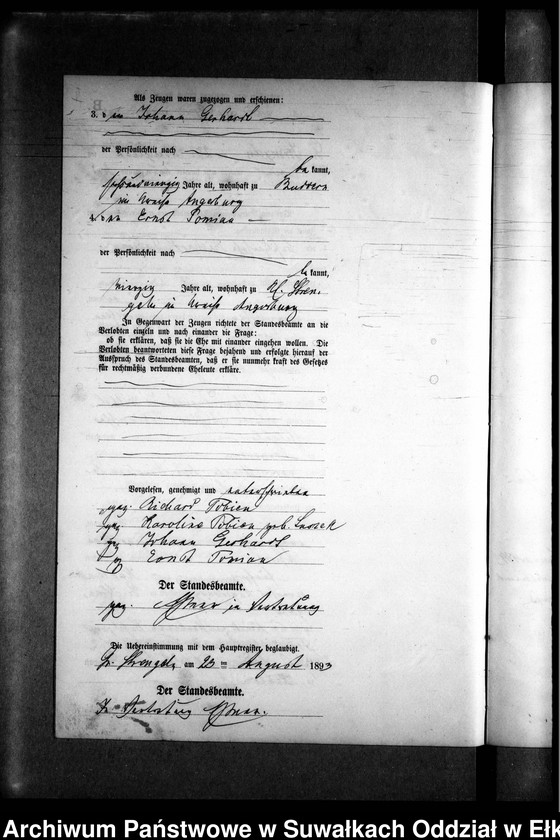 Als Zeugen waren zugezogen und erschienen:
3. den Johann Gerhardt
der Persönlichkeit nach
be kannt,
Jahre alt, wohnhaft zu Buddern
im Kreise Angerburg
4. den Ernst Tomian
der Persönlichkeit nach
be kannt,
vierzig Jahre alt, wohnhaft zu Kl. Stren-
geln im Kreise Angerburg
In Gegenwart der Zeugen richtete der Standesbeamte an die
Verlobten einzeln und nach einander die Frage:
ob sie erklären, daß sie die Ehe mit einander eingehen wollen. Die
Verlobten beantworteten diese Frage bejahend und erfolgte hierauf der
Ausspruch des Standesbeamten, daß er sie nunmehr kraft des Gesetzes
für rechtmäßig verbundene Eheleute erkläre.
Vorgelesen, genehmigt und unterschrieben
gez. Richard Tobien
gez. Karoline Tobien geb.
gez. Johann Gerhardt
gez. Ernst Tomian
Der Standesbeamte.
gez. in Vertretung
Die Uebereinstimmung mit dem Hauptregister beglaubigt.
Gr. Strengeln am 23 ten August 1893
Der Standesbeamte.
In Vertretung
Archiwum Państwowe w Suwałkach Oddział w Ełk